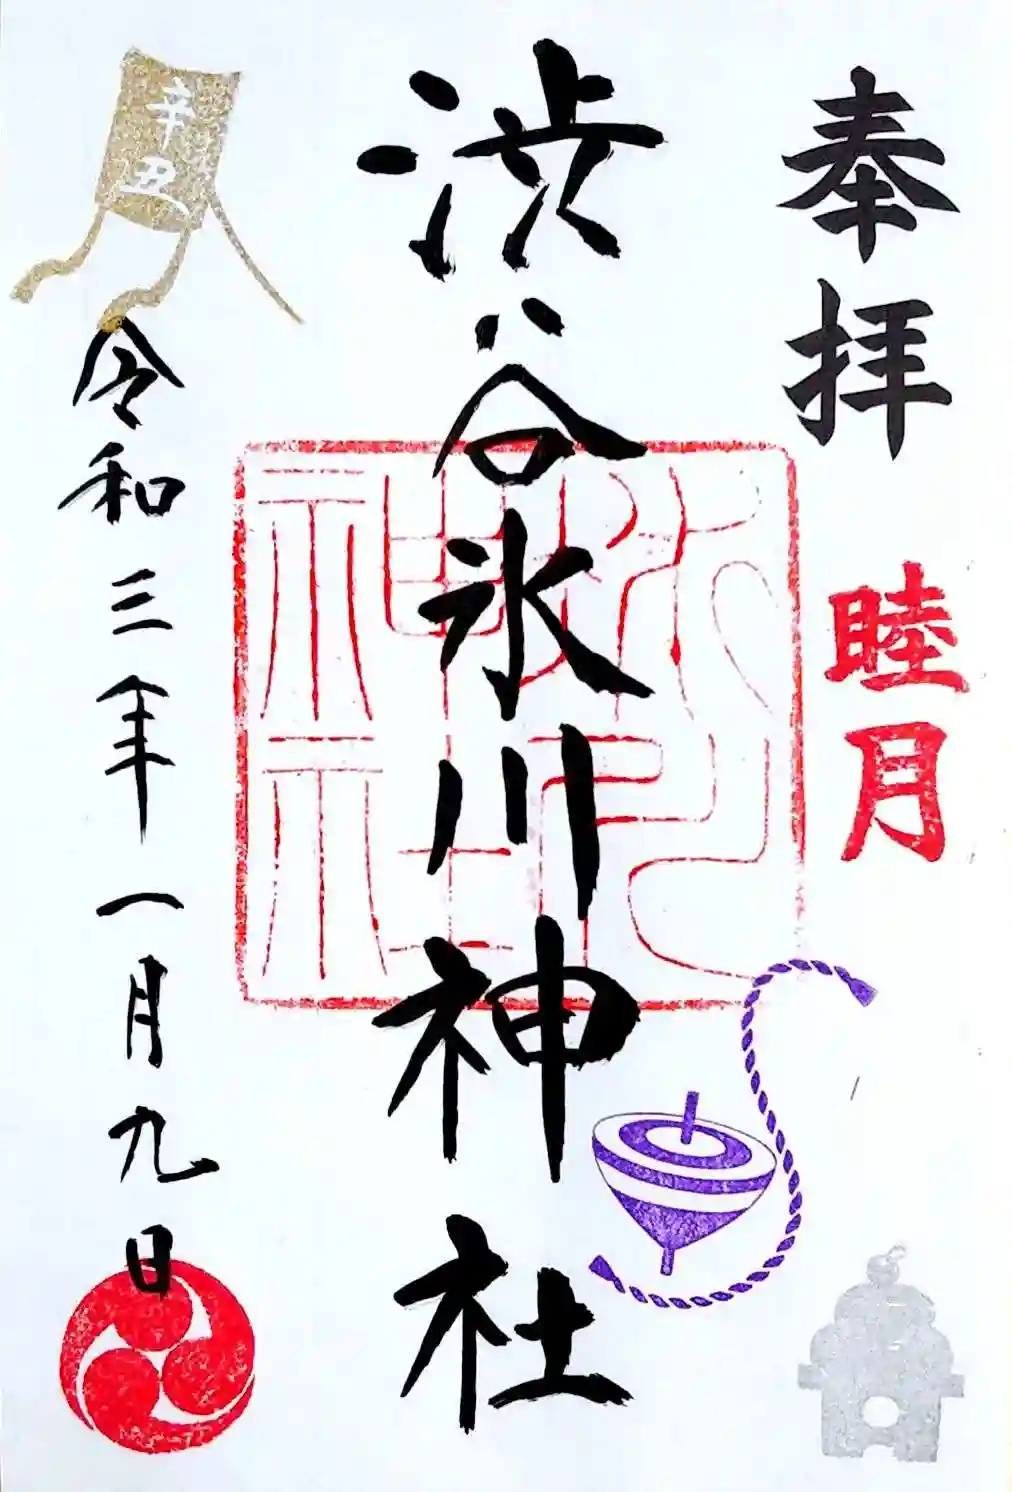 奉拝
睦月
渋谷氷川神社
氷川神社
辛丑
令和三年一月九日